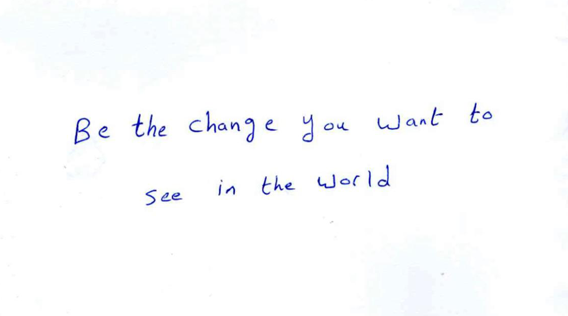 Be the change you want to
see in the world